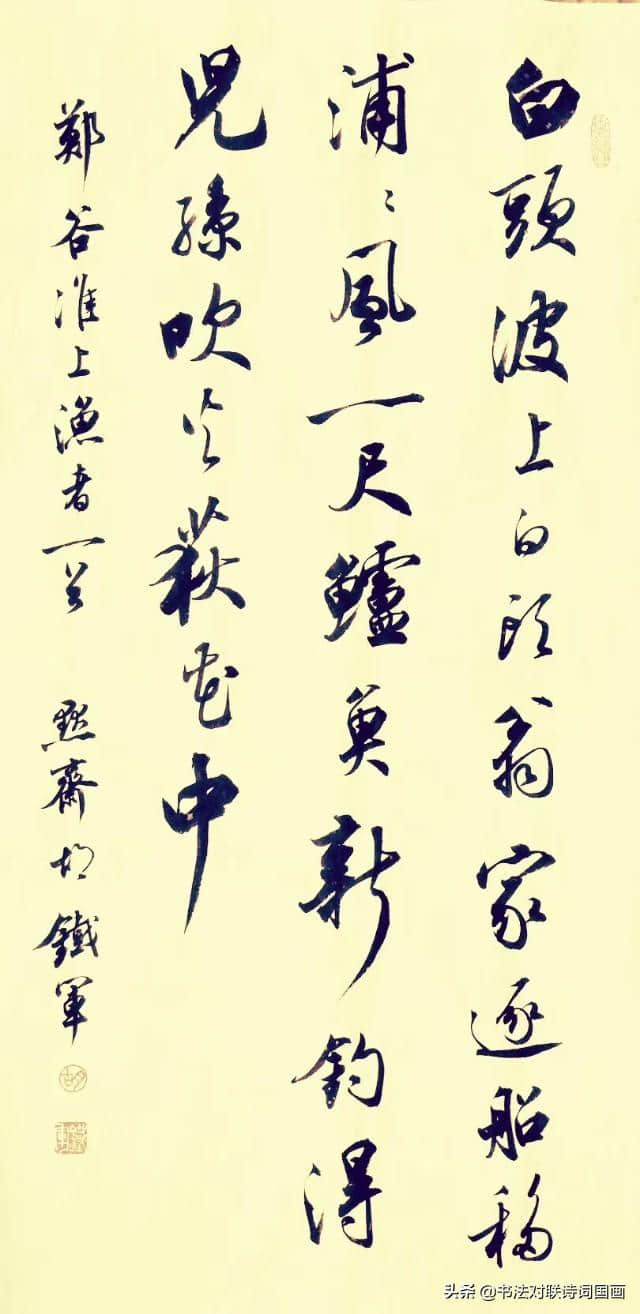 白頭波上白頭翁家逐船移
浦〻風一尺鱸魚新釣得
兒孫吹火荻花中
鄭谷淮上漁者一首 默齋胡鐵軍
头条 @书法对联诗词国画